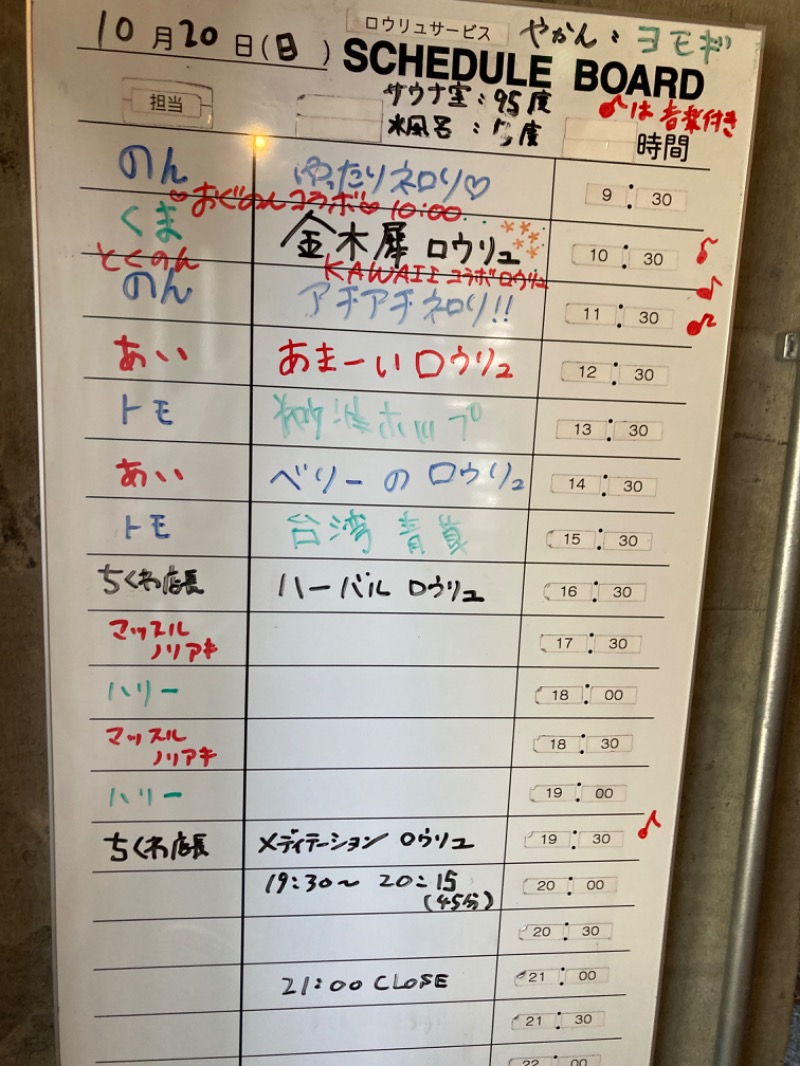 10月20日(日)
ロウリュサービス
やかん:ヨモギ
SCHEDULE BOARD
サウナ室:95度
♪は音楽付き
担当
水風呂:
度
時間
のん ゆったりネロリ♡ 9:30
♡おぐのんコラボ♡ 10:00
くま 金木犀 ロウリュ 10:30 ♪
とくのん KAWAIIコラボロウリュ ♪
のん アチアチネロリ!! 11:30 ♪
あい あまーいロウリュ 12:30
トモ ホップ 13:30
あい ベリーのロウリュ 14:30
トモ 台湾 青 15:30
ちくわ店長 ハーバル ロウリュ 16:30
マッスルノリアキ 17:30
ハリー 18:00
マッスルノリアキ 18:30
ハリー 19:00
ちくわ店長 メディテーション ロウリュ 19:30 ♪
19:30〜20:15 20:00
(45分)
20:30
21:00 CLOSE 21:00
21:30
22:00